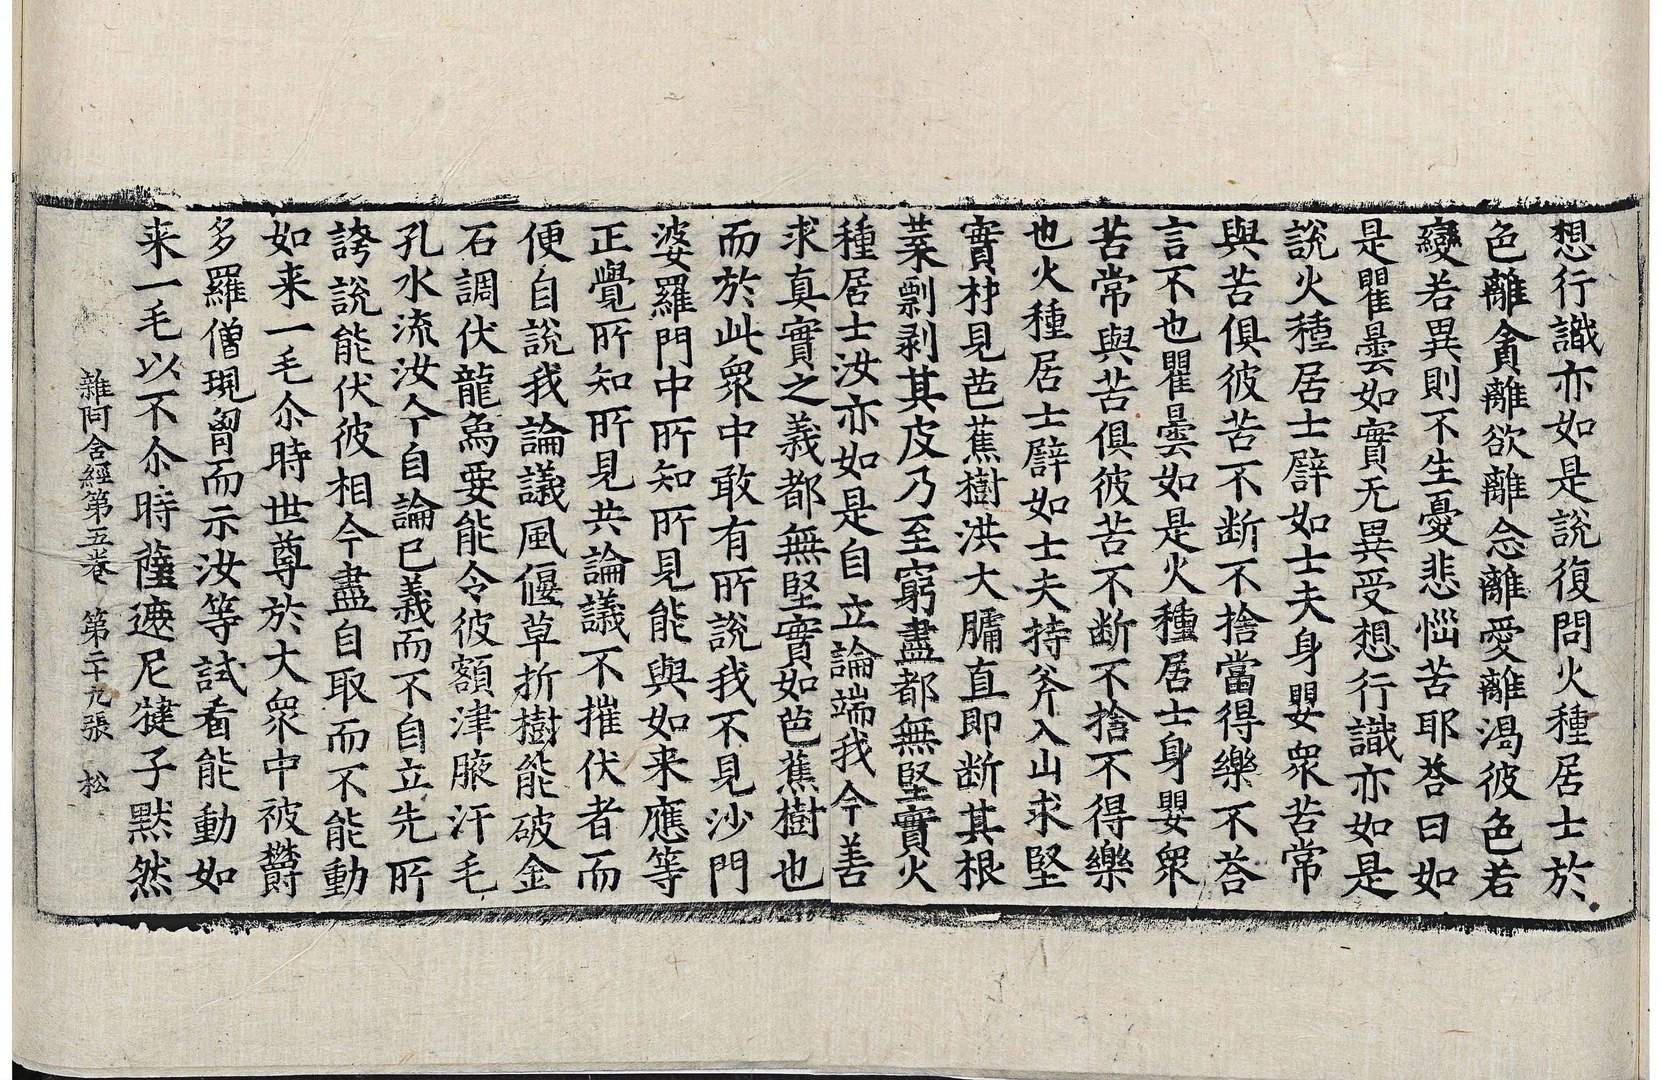 想行識亦如是說復問火種居士於
色離貪離欲離念離愛離渴彼色若
變若異則不生憂悲惱苦耶荅曰如
是瞿曇如實无異受想行識亦如是
說火種居士譬如士夫身嬰眾苦常
與苦俱彼苦不断不捨當得樂不荅
言不也瞿曇如是火種居士身嬰眾
苦常與苦俱彼苦不断不捨不得樂
也火種居士譬如士夫持斧入山求堅
實材見芭蕉樹洪大𦟛直即断其根
葉剽剥其皮乃至窮盡都無堅實火
種居士汝亦如是自立論端我今善
求真實之義都無堅實如芭蕉樹也
而於此眾中敢有所說我不見沙門
婆羅門中所知所見能與如来應等
正覺所知所見共論議不摧伏者而
便自說我論議風偃草折樹能破金
石調伏龍象要能令彼額津腋汗毛
孔水流汝今自論己義而不自立先所
誇說能伏彼相今盡自取而不能動
如来一毛尒時世尊於大眾中被欝
多羅僧現胷而示汝等試看能動如
来一毛以不尒時薩遮尼犍子默然
雜阿含經第五卷　第二十九張　松